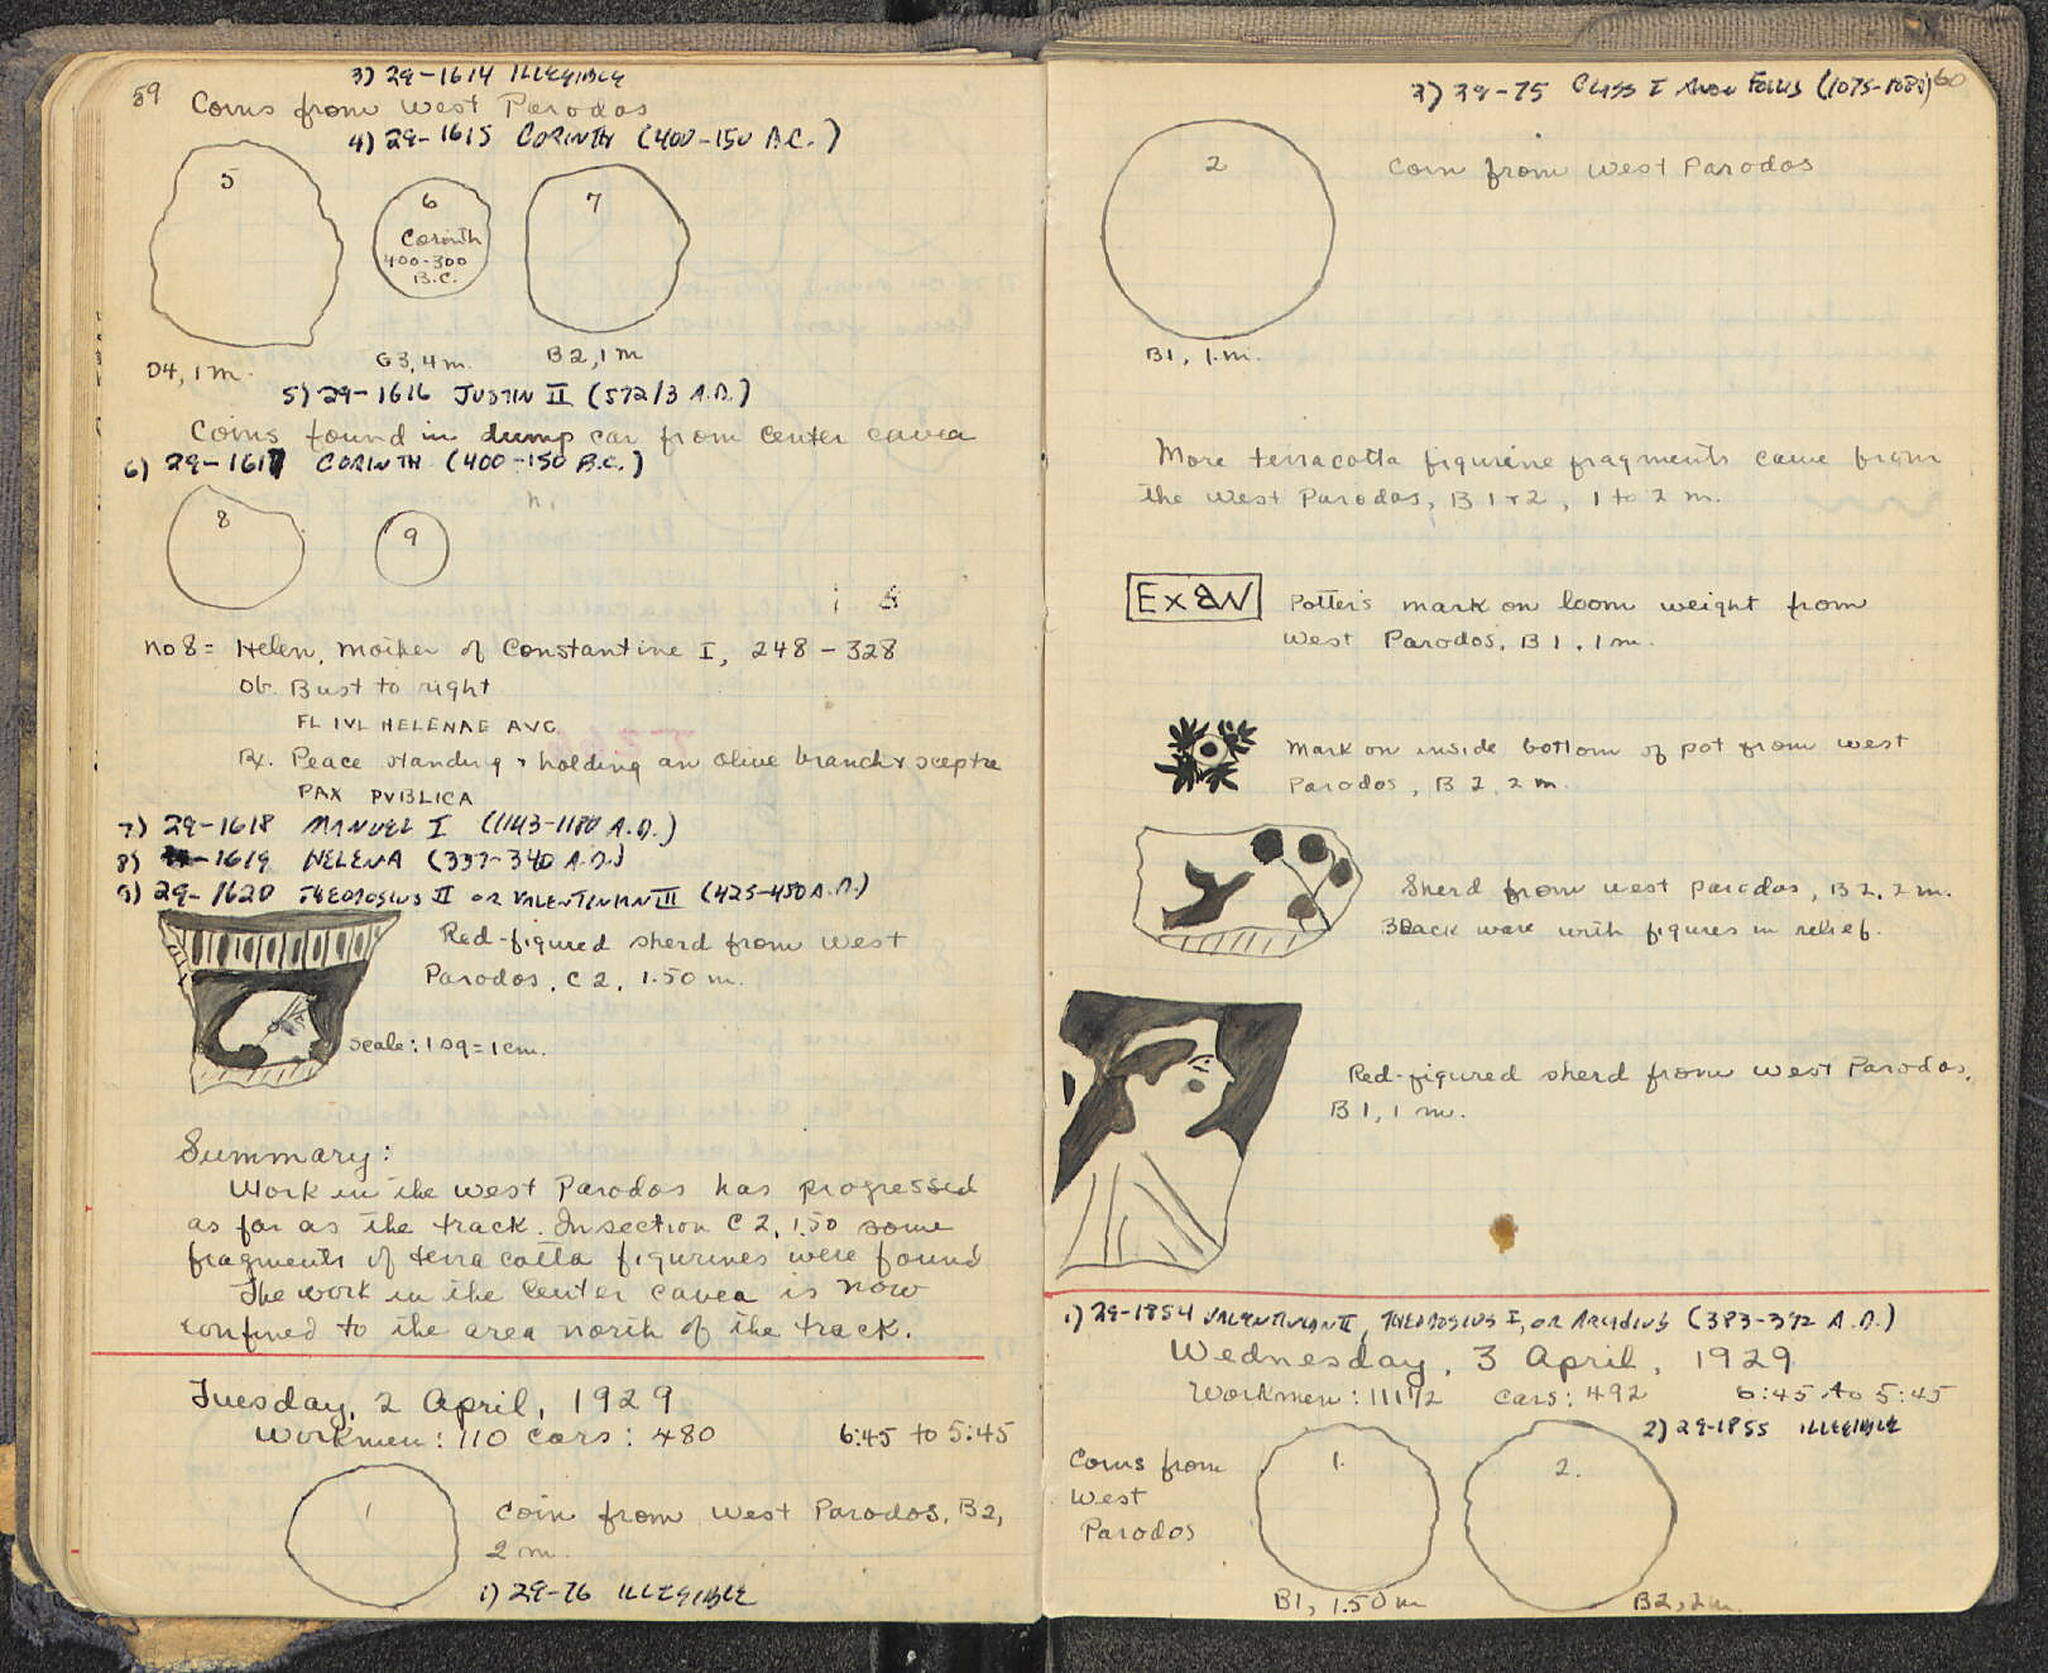 59
3) 29-1614 ILLEGIBLE
Coins from West Parodos
4) 29-1615 CORINTH (400-150 B.C.)
5
6
Corinth
400-300
B.C.
7
D4, 1 m.
G3, 4 m.
B2, 1 m
5) 29-1616 JUSTIN II (572/3 A.D.)
Coins found in dump car from center cavea
6) 29-1617 CORINTH (400-150 B.C.)
8
9
no 8 = Helen, mother of Constantine I, 248-328
Ob. Bust to right
FL IVL HELENAE AVG
Rx. Peace standing + holding an olive branch + sceptre
PAX PVBLICA
7) 29-1618 MANUEL I (1143-1180 A.D.)
8) 29-1619 HELENA (337-340 A.D.)
9) 29-1620 THEODOSIUS II OR VALENTINIAN III (425-450 A.D.)
Red-figured sherd from West
Parodos, C 2, 1.50 m.
scale: 1 sq = 1 cm.
Summary:
Work in the west Parodos has progressed
as far as the track. In section C 2, 1.50 some
fragments of terra cotta figurines were found
The work in the Center cavea is now
confined to the area north of the track.
Tuesday, 2 April, 1929
Workmen: 110 Cars: 480 6:45 to 5:45
1
Coin from West Parodos, B2,
2 m
1) 29-76 ILLEGIBLE
60
2) 29-75 CLASS I ANON FOLLIS
2
Coin from West Parodos
B1, 1 m.
More terracotta figurine fragments came from
the West Parodos, B 1 + 2, 1 to 2 m.
Potter's mark on loom weight from
West Parodos, B 1, 1 m.
Mark on inside bottom of pot from west
Parodos, B 2, 2 m.
Sherd from west parodos, B 2, 2 m.
Black ware with figures in relief.
Red-figured sherd from west Parodos,
B 1, 1 m.
1) 29-1854 VALENTINIAN II, THEODOSIUS I, OR ARCADIUS (383-392 A.D.)
Wednesday, 3 April, 1929
Workmen: 111 1/2 Cars: 492 6:45 to 5:45
2) 29-1855 ILLEGIBLE
Coins from
West
Parodos
1.
2.
B1, 1.50 m
B2, 2 m.